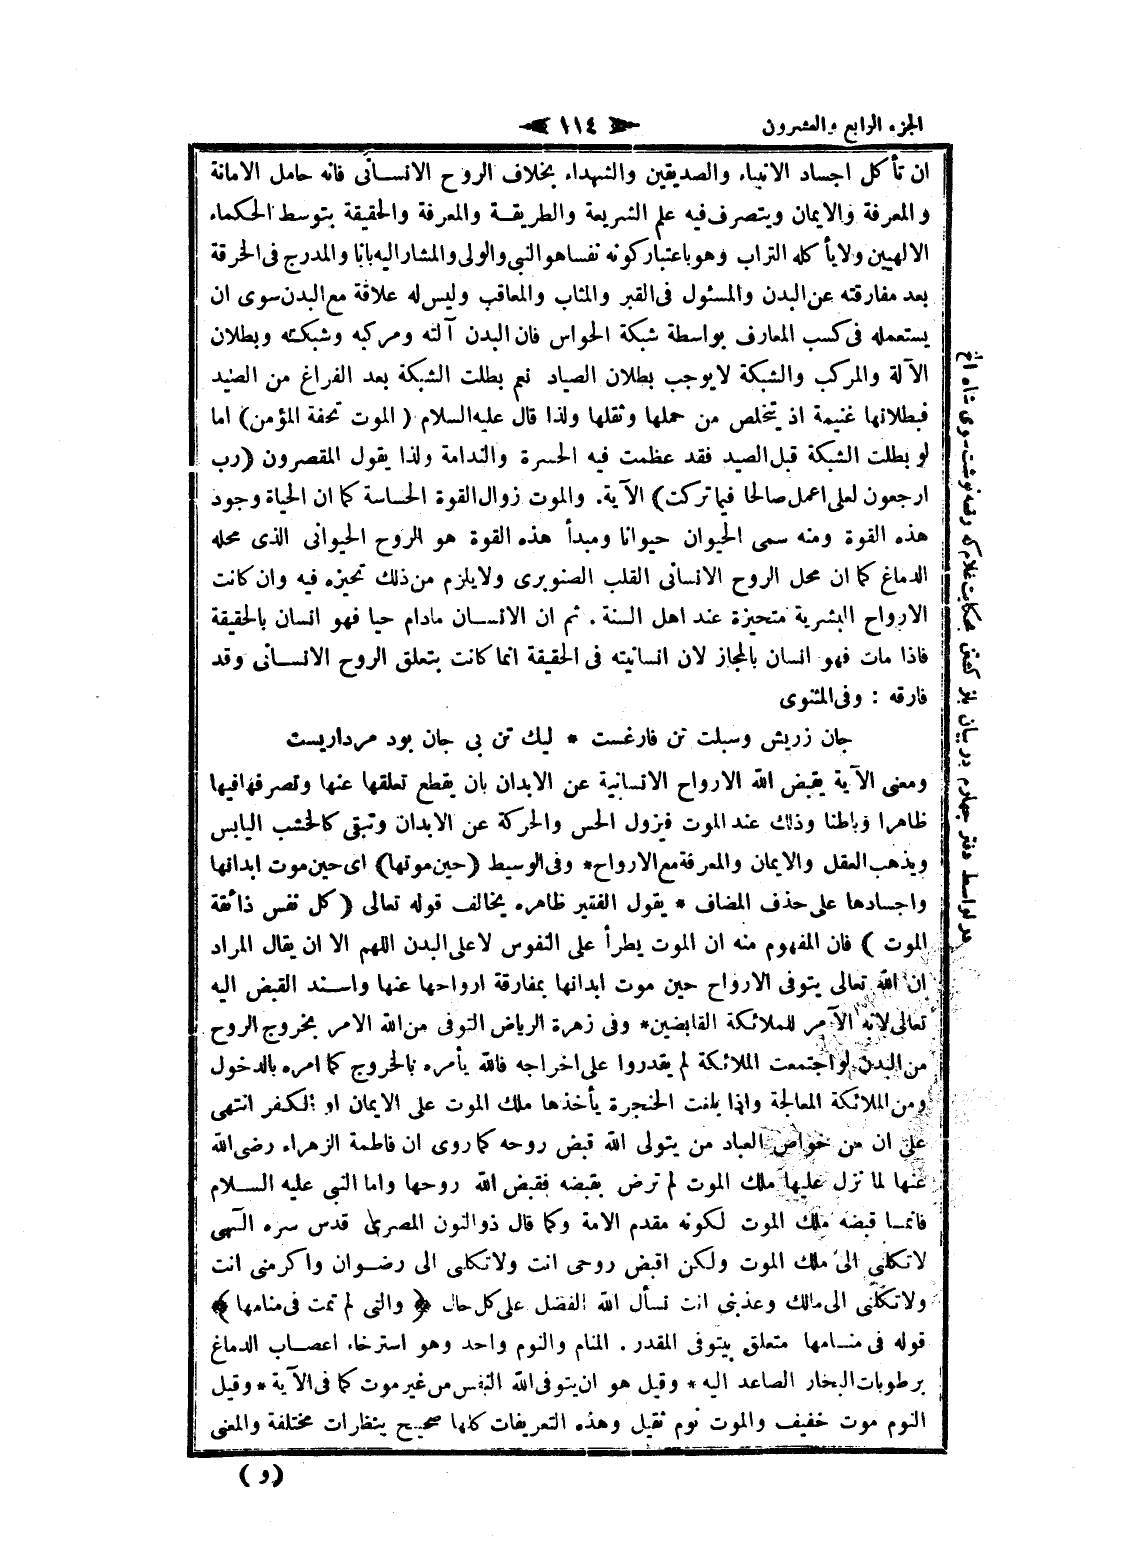 الجزء الرابع والعشرون
١١٤
ان تأكل اجساد الانبياء والصديقين والشهداء بخلاف الروح الانسانى فانه حامل الامانة
والمعرفة والايمان ويتصرف فيه علم الشريعة والطريقة والمعرفة والحقيقة بتوسط الحكماء
الالهيين ولا يأكله التراب وهو باعتبار كونه نفسا هو النبى والولى والمشار اليه بانا والمدرج فى الخرقة
بعد مفارقته عن البدن والمسئول فى القبر والمثاب والمعاقب وليس له علاقة مع البدن سوى ان
يستعمله فى كسب المعارف بواسطة شبكة الحواس فان البدن آلته ومركبه وشبكته وبطلان
الآلة والمركب والشبكة لا يوجب بطلان الصياد نعم بطلت الشبكة بعد الفراغ من الصيد
فبطلانها غنيمة اذ يتخلص من حملها وثقلها ولذا قال عليه السلام ( الموت تحفة المؤمن ) اما
لو بطلت الشبكة قبل الصيد فقد عظمت فيه الحسرة والندامة ولذا يقول المقصرون ( رب
ارجعون لعلى اعمل صالحا فيما تركت ) الآية. والموت زوال القوة الحساسة كما ان الحياة وجود
هذه القوة ومنه سمى الحيوان حيوانا ومبدأ هذه القوة هو الروح الحيوانى الذى محله
الدماغ كما ان محل الروح الانسانى القلب الصنوبرى ولا يلزم من ذلك تحيزه فيه وان كانت
الارواح البشرية متحيزة عند اهل السنة . ثم ان الانسان مادام حيا فهو انسان بالحقيقة
فاذا مات فهو انسان بالمجاز لان انسانيته فى الحقيقة انما كانت بتعلق الروح الانسانى وقد
فارقه : وفى المثنوى
جان زريش وسبلت تن فارغست * ليك تن بى جان بود مرداريست
ومعنى الآية يقبض الله الارواح الانسانية عن الابدان بان يقطع تعلقها عنها وتصرفها فيها
ظاهرا وباطنا وذلك عند الموت فيزول الحس والحركة عن الابدان وتبقى كالخشب اليابس
ويذهب العقل والايمان والمعرفة مع الارواح* وفى الوسيط ( حين موتها ) اى حين موت ابدانها
واجسادها على حذف المضاف * يقول الفقير ظاهره يخالف قوله تعالى ( كل نفس ذائقة
الموت ) فان المفهوم منه ان الموت يطرأ على النفوس لا على البدن اللهم الا ان يقال المراد
ان الله تعالى يتوفى الارواح حين موت ابدانها بمفارقة ارواحها عنها واسند القبض اليه
تعالى لانه الآمر للملائكة القابضين* وفى زهرة الرياض التوفى من الله الامر بخروج الروح
من البدن لو اجتمعت الملائكة لم يقدروا على اخراجه فالله يأمره بالخروج كما امره بالدخول
ومن الملائكة المعالجة واذا بلغت الحنجرة يأخذها ملك الموت على الايمان او الكفر انتهى
على ان من خواص العباد من يتولى الله قبض روحه كما روى ان فاطمة الزهراء رضى الله
عنها لما نزل عليها ملك الموت لم ترض بقبضه فقبض الله روحها واما النبى عليه السلام
فانما قبضه ملك الموت لكونه مقدم الامة وكما قال ذو النون المصرى قدس سره الٓهى
لا تكلنى الى ملك الموت ولكن اقبض روحى انت ولا تكلنى الى رضوان واكرمنى انت
ولا تكلنى الى مالك وعذبنى انت نسأل الله الفضل على كل حال ﴿ والتى لم تمت فى منامها ﴾
قوله فى منامها متعلق بيتوفى المقدر . المنام والنوم واحد وهو استرخاء اعصاب الدماغ
برطوبات البخار الصاعد اليه * وقيل هو ان يتوفى الله النفس من غير موت كما فى الآية * وقيل
النوم موت خفيف والموت نوم ثقيل وهذه التعريفات كلها صحيح بنظرات مختلفة والمعنى
در اواسط دفتر چهارم در بيان باز كفتن حكايت غلام كه رقعه نوشت سوى شاه الخ
( و )